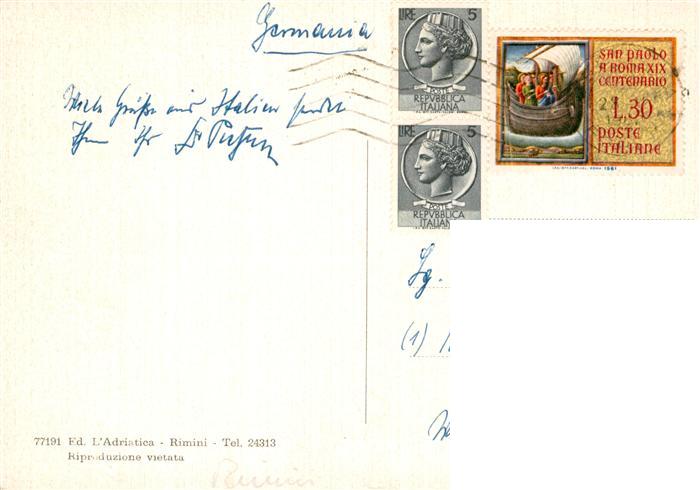 Germania
Viele Grüße aus Italien sendet
Ihnen Ihr Dr
LIRE 5
POSTE
REPVBBLICA
ITALIANA
LIRE 5
POSTE
REPVBBLICA
ITALIANA
SAN PAOLO
A ROMA XIX
CENTENARIO
L.30
POSTE
ITALIANE
1961
Fg.
(1)
77191 Ed. L'Adriatica - Rimini - Tel. 24313
Riproduzione vietata
Rimini